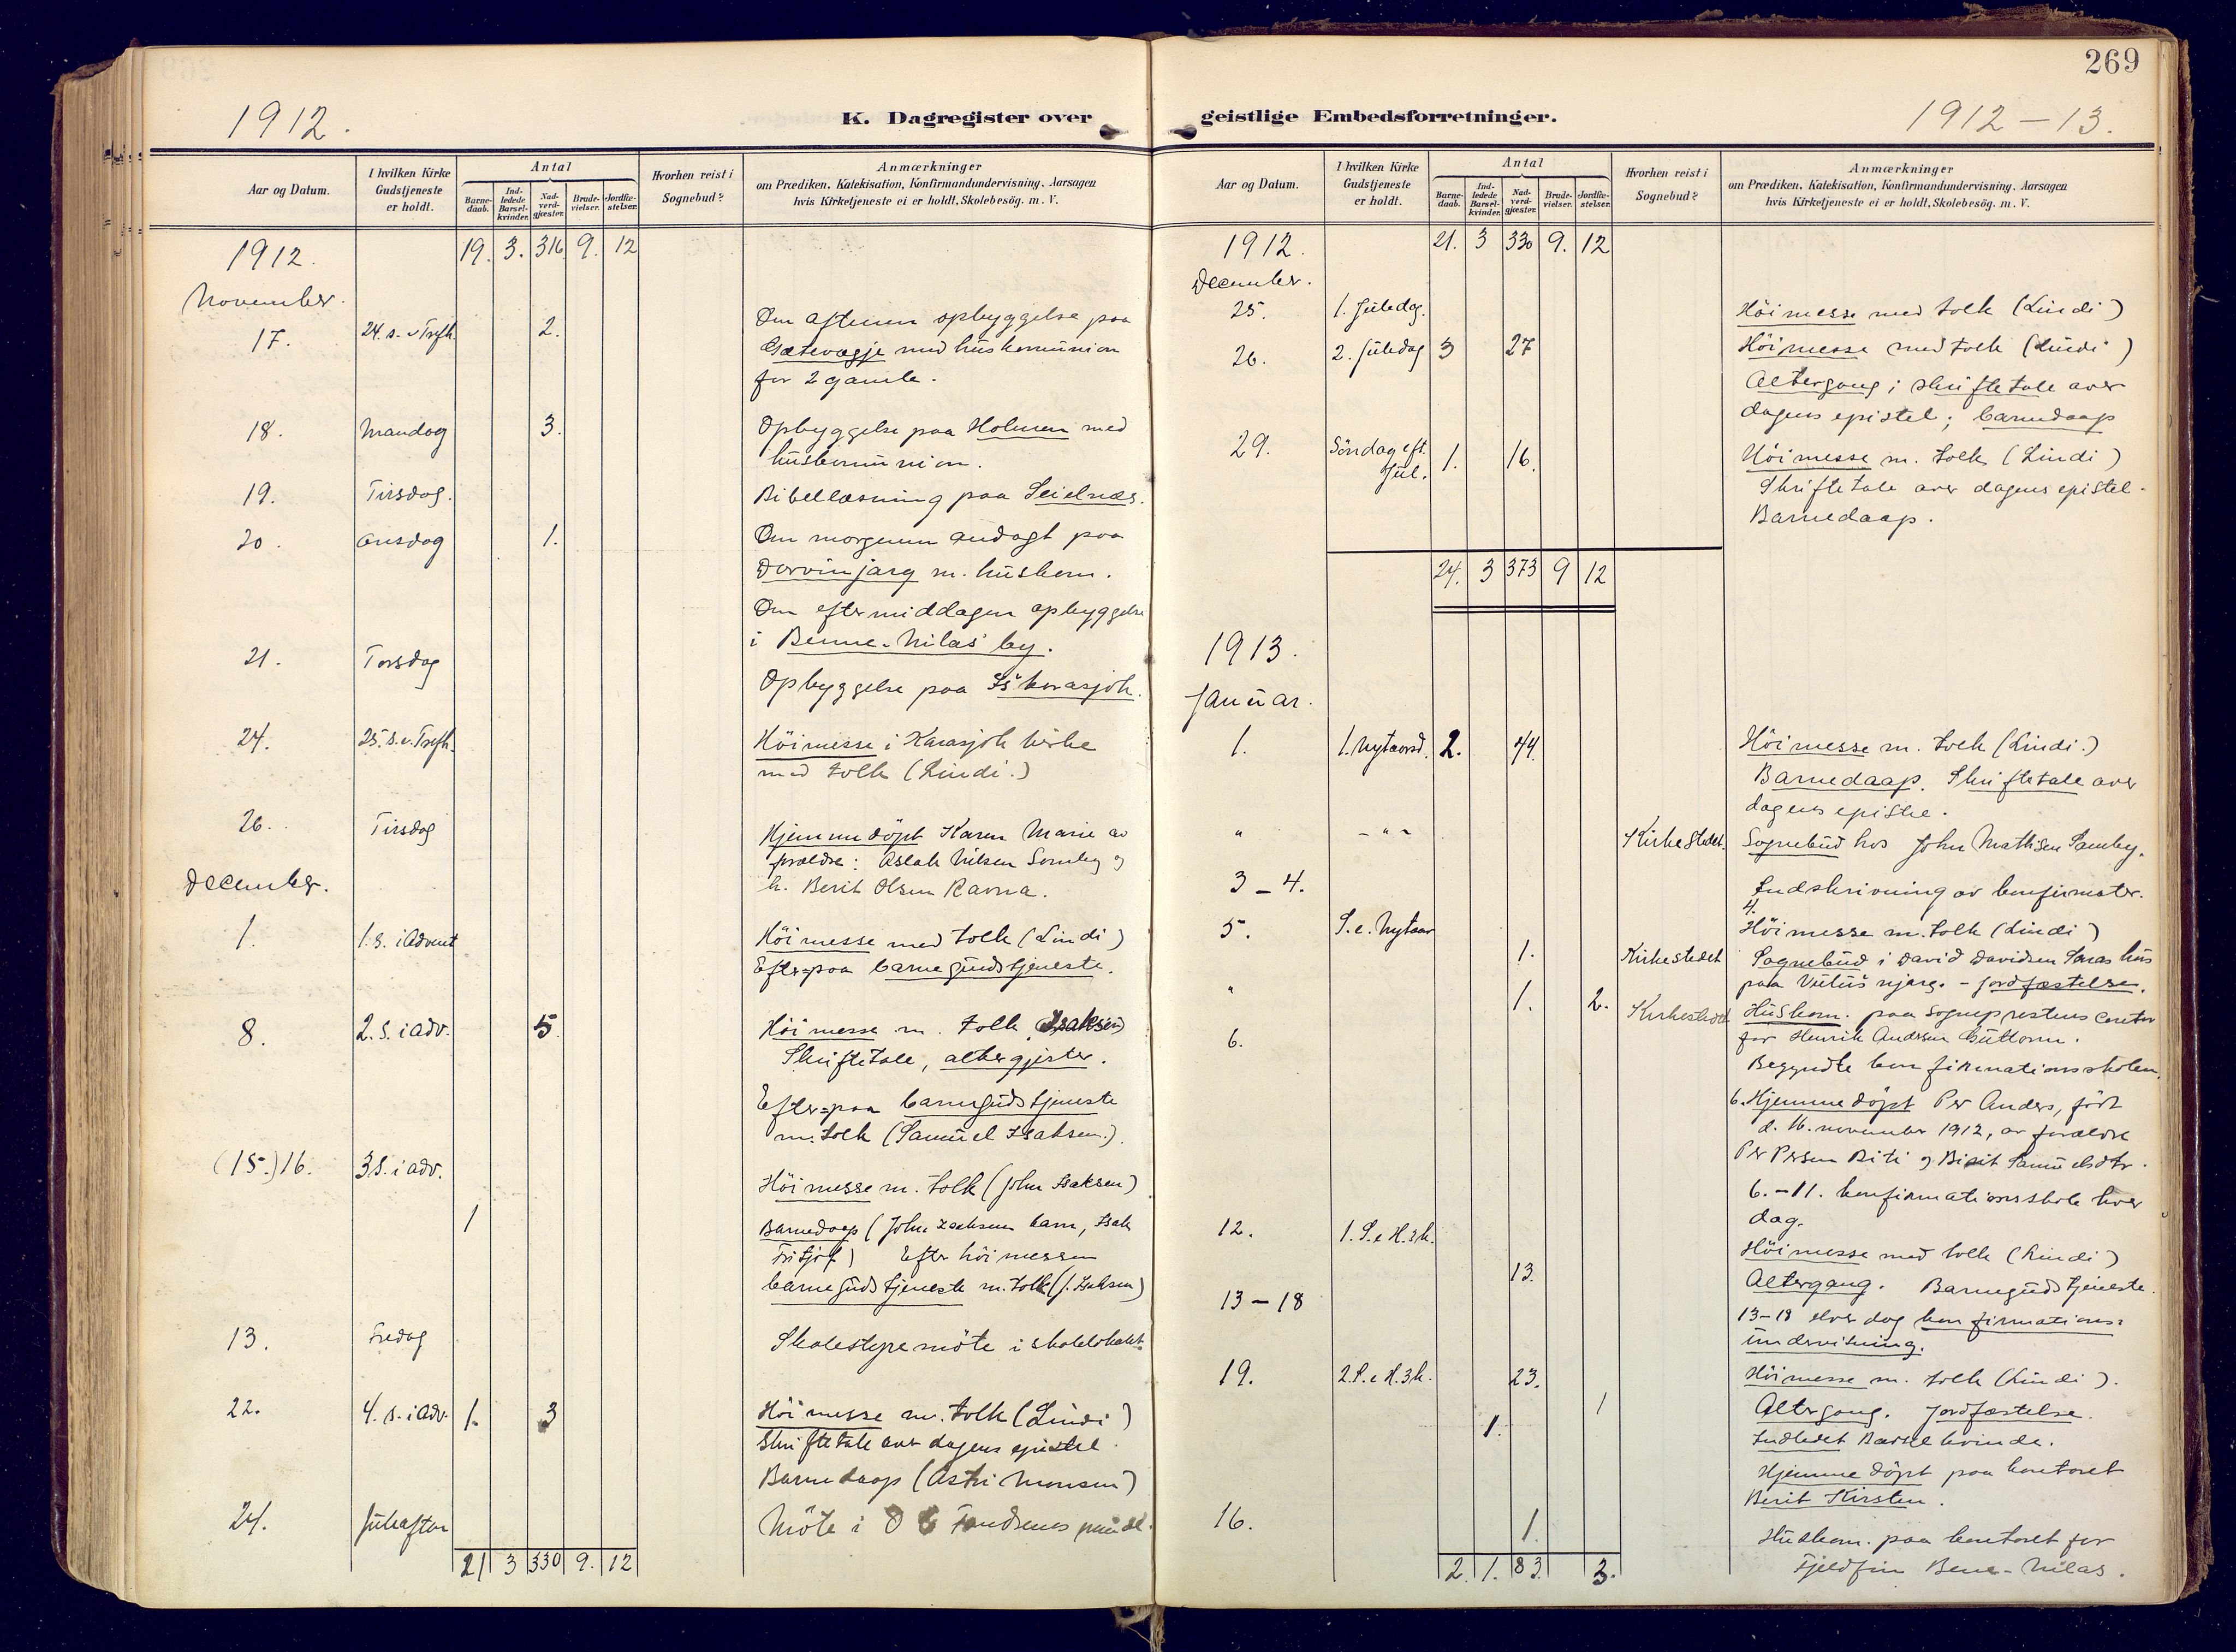 269
1912.
K. Dagregister over
Aar og Datum.
I hvilken Kirke Gudstjeneste er holdt.
Antal
Barne-daab.
Ind-ledede Barsel-kvinder.
Nad-verd-gjæster.
Brude-vielser.
Jordfæ-stelser.
Hvorhen reist i Sognebud?
Anmærkninger
om Prædiken, Katekisation, Konfirmandundervisning, Aarsagen
hvis Kirketjeneste ei er holdt, Skolebesög. m. V.
1912. 19. 3. 316 9. 12
November.
17. 24. s. e Trefh. 2. Om aftenen opbyggelse paa
med huskomunion
for 2 gamle.
18. Mandag 3. Opbyggelse paa Holmen med
huskomunion.
19. Tirsdag. Bibellæsning paa
20. Onsdag 1. Om morgenen andagt paa
m. huskom.
Om eftermiddagen opbyggelse
i Benne-Nilas' by.
21. Torsdag
Opbyggelse paa
24. 25. s. e. Trefh. Höimesse i Karasjok kirke
med tolk (Lindi.)
26. Tirsdag Hjemmedöpt Karen Marie av
forældre: Aslak Nilsen Somby og
h. Berit Olsen Ravna.
December.
1. 1. s. i Advent Höimesse med tolk (Lindi)
Efterpaa barnegudstjeneste.
8. 2. s. i adv. 5. Höimesse m. tolk Isaksen
Skriftetale, altergjester.
Efter=paa barnegudstjeneste
m. tolk (Samuel Isaksen.).
(15.) 16. 3. s. i adv.
Höimesse m. tolk (John Isaksen)
1 Barnedaap (John Isaksens barn, Isak
Fritjof) Efter höimessen
barnegudstjeneste m. tolk (J. Isaksen)
13. Fredag Skolestyremöte i skolelokalet.
22. 4. s. i adv. 1. 3 Höimesse m. tolk (Lindi)
Skriftetale over dagens epistel.
Barnedaap (Astri Monsen)
24. Juleaften Möte i
21 3 330 9. 12
geistlige Embedsforretninger.
1912-13.
Aar og Datum.
I hvilken Kirke Gudstjeneste er holdt.
Antal
Barne-daab.
Ind-ledede Barsel-kvinder.
Nad-verd-gjæster.
Brude-vielser.
Jordfæ-stelser.
Hvorhen reist i Sognebud?
Anmærkninger
om Prædiken, Katekisation, Konfirmandundervisning, Aarsagen
hvis Kirketjeneste ei er holdt, Skolebesög. m. V.
1912. 21. 3 330 9. 12
December.
25. 1. Juledag. Höimesse med tolk (Lindi)
26. 2. Juledag 3 27 Höimesse med tolk (Lindi)
Altergang; skriftetale over
dagens epistel; barnedaap
29. Söndag eft. Jul. 1. 16. Höimesse m. tolk (Lindi)
Skriftetale over dagens epistel.
Barnedaap.
24. 3 373 9 12
1913.
Januar.
1. 1. Nytaarsd. 2. 44. Höimesse m. tolk (Lindi.)
Barnedaap. Skriftetale over
dagens epistel.
" - " - Kirkestedet. Sognebud hos John Mathisen Somby.
3-4. Indskrivning av konfirmater.
4.
5. S. e. Nytaar Höimesse m. tolk (Lindi)
1. Kirkestedet Sognebud i David Davidsen hus
paa njarg. - Jordfæstelse.
" 1. 2. Kirkestedet Huskom. paa Sogneprestens contor
6. for Henrik Andersen Guttorm.
Begyndte konfirmationsskolen.
6. Hjemmedöpt Per Anders, född
d. 16. november 1912, av forældre
Per Persen Biti og Berit Samuelsdtr.
6.-11. konfirmationsskole hver
dag.
12. 1. S. e H. 3 k. Höimesse med tolk (Lindi)
13. Altergang. Barnegudstjeneste.
13-18 13-18 hver dag konfirmations=
undervisning.
19. 2. S. e H. 3 k. 23. Höimesse m. tolk (Lindi).
1 Altergang. Jordfæstelse.
1. Indledet Barselkvinde.
Hjemmedöpt paa kontoret
Berit Kirsten.
16. 1. Huskom. paa kontoret for
Fjeldfin Bene-Nilas.
2. 1. 83. 3.